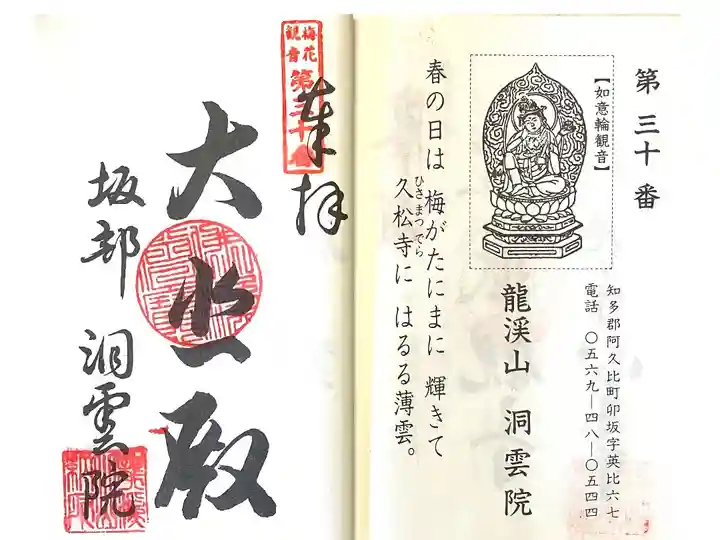 第三十番
【如意輪観音】
知多郡阿久比町卯坂字英比六七
電話 〇五六九―四八―〇五四四
龍渓山 洞雲院
春の日は 梅がたにまに 輝きて
久松寺に はるる薄雲。
ひさまつでら
梅花
観音
第三十番
奉拝
大悲殿
坂部 洞雲院